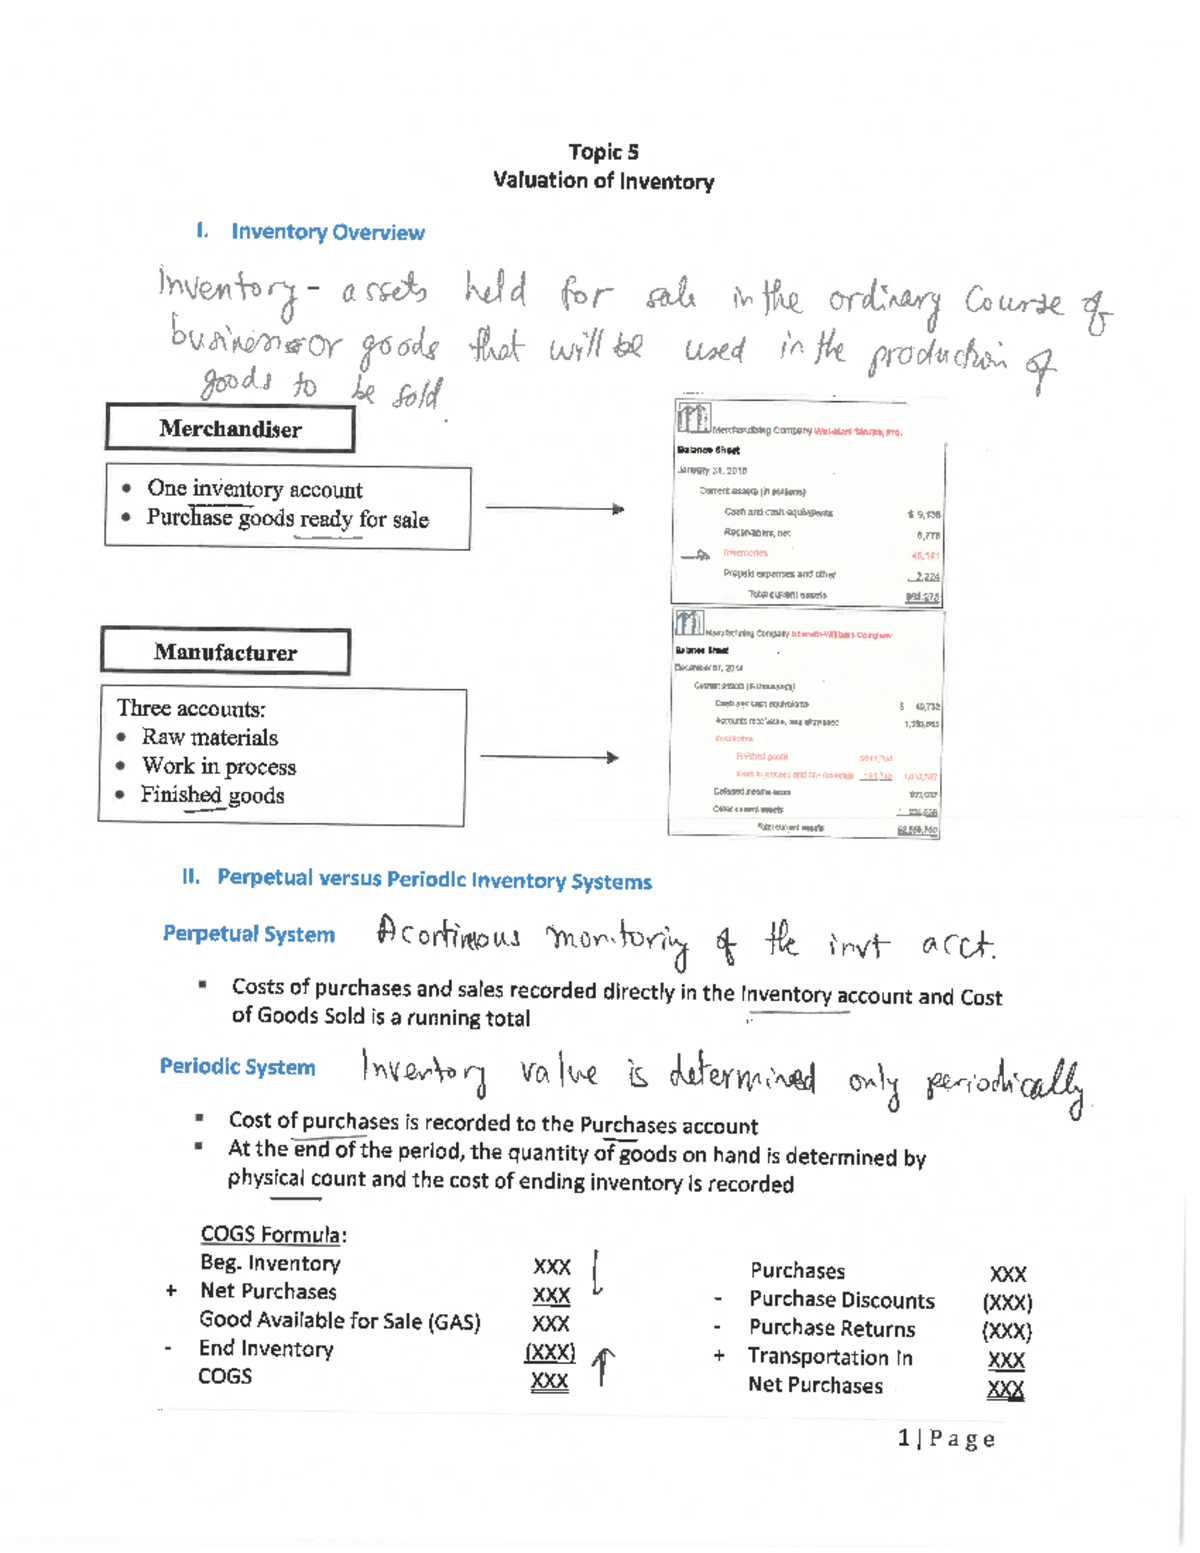 Topic 5
Valuation of Inventory
I. Inventory Overview
Inventory - assets held for sale in the ordinary course of
business or goods that will be used in the production of
goods to be sold
Merchandiser
• One inventory account
• Purchase goods ready for sale
Merchandising Company Wal-Mart Stores, Inc.
Balance Sheet
January 31, 2010
Current assets (in millions)
Cash and cash equivalents
Receivables, net
Inventories
Prepaid expenses and other 2,224
Total current assets
Manufacturer
Three accounts:
• Raw materials
• Work in process
• Finished goods
Manufacturing Company Sherwin-Williams Company
Balance Sheet
Current assets
Cash and cash equivalents
Accounts receivable, less allowance
Inventories
Finished goods
Work in process and raw materials
Deferred income taxes
Other current assets
Total current assets
II. Perpetual versus Periodic Inventory Systems
Perpetual System A continuous monitoring of the invt acct.
▪ Costs of purchases and sales recorded directly in the Inventory account and Cost
of Goods Sold is a running total
Periodic System Inventory value is determined only periodically.
▪ Cost of purchases is recorded to the Purchases account
▪ At the end of the period, the quantity of goods on hand is determined by
physical count and the cost of ending inventory is recorded
COGS Formula:
Beg. Inventory XXX
+ Net Purchases XXX
Good Available for Sale (GAS) XXX
- End Inventory (XXX)
COGS XXX
Purchases XXX
- Purchase Discounts (XXX)
- Purchase Returns (XXX)
+ Transportation In XXX
Net Purchases XXX
1 | P a g e